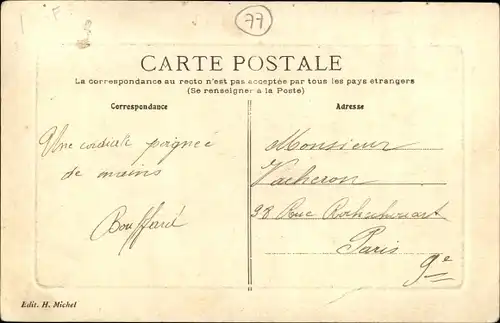 77
CARTE POSTALE
La correspondance au recto n'est pas acceptée par tous les pays étrangers
(Se renseigner à la Poste)
Correspondance
Adresse
Une cordiale poignée
de mains
Bouffard
Monsieur
Vacheron
38 Rue Rochechouart
Paris
9e
Edit. H. Michel